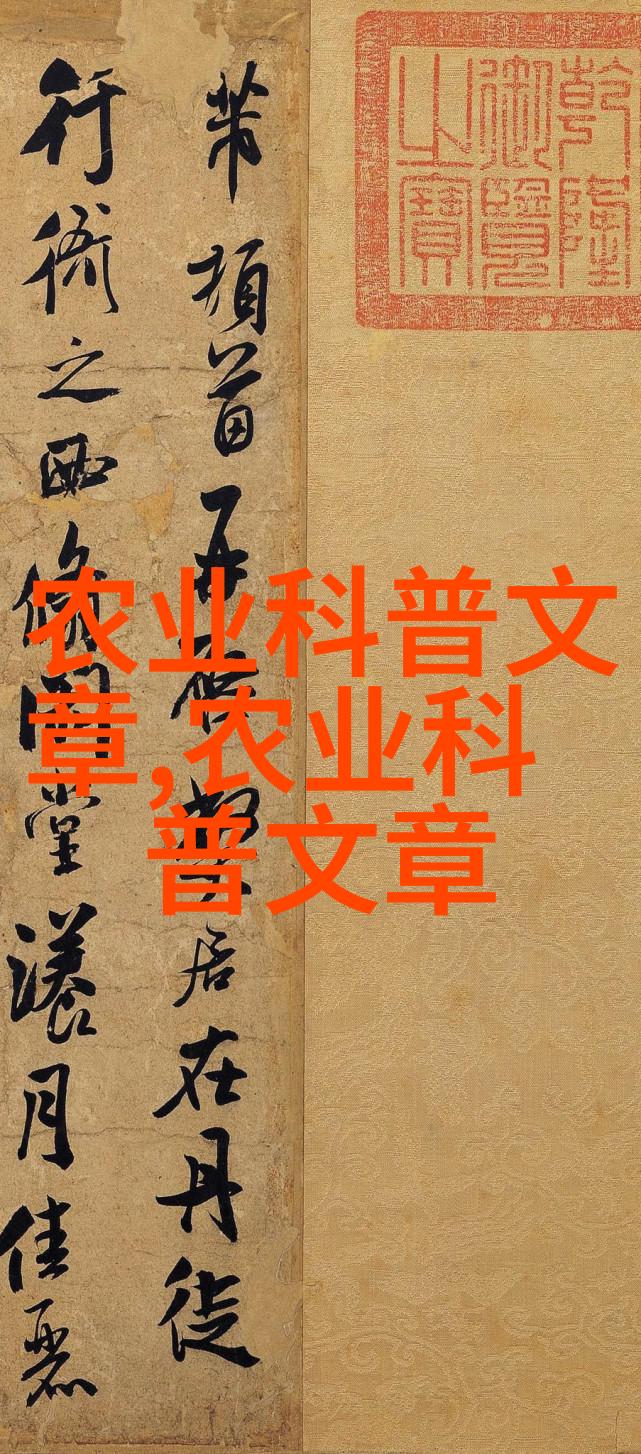 乾隆
御覽
之寶
芾頓首再啓弊居在丹徒
行衙之西翛閒堂漾月佳麗
农业科普文
章,农业科
普文章